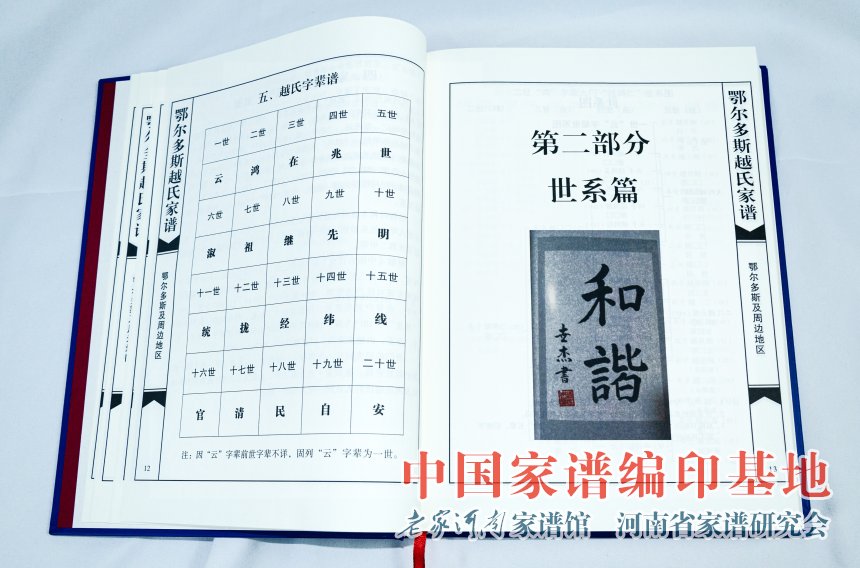 五、越氏字辈谱
一世 二世 三世 四世 五世
云 鸿 在 兆 世
六世 七世 八世 九世 十世
淑 祖 继 先 明
十一世 十二世 十三世 十四世 十五世
统 拢 经 纬 线
十六世 十七世 十八世 十九世 二十世
官 清 民 自 安
注：因“云”字辈前世字辈不详，固列“云”字辈为一世。
鄂尔多斯越氏家谱
鄂尔多斯及周边地区
12
第二部分
世系篇
和谐
杰书
鄂尔多斯越氏家谱
鄂尔多斯及周边地区
13
中国家谱编印基地
老家河南家谱馆 河南省家谱研究会